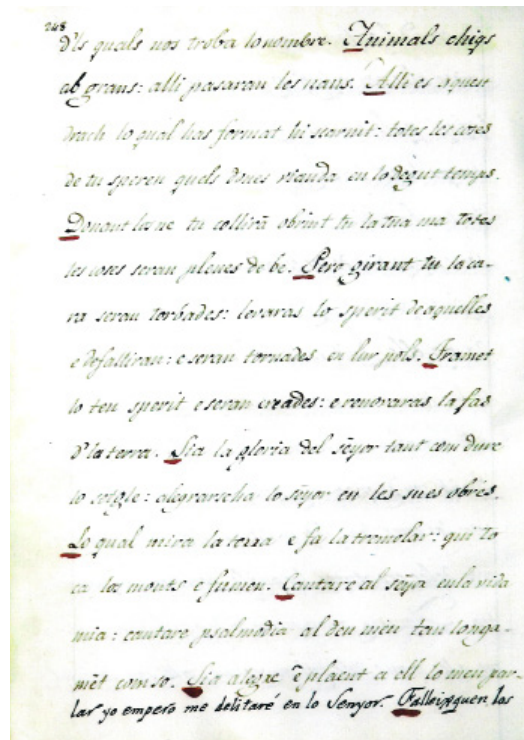 248
d'ls quals nos troba lo nombre. Animals chiqs
ab grans: alli pasaran les naus. Alli es aquen
drach lo qual has format hi scarnit: totes les coses
de tu speren quels dones vianda en lo degut temps.
Donant los ne tu colliră obrint tu la tua ma totes
les coses seran plenes de be. Pero girant tu la ca-
ra seran torbades: levaras lo sperit de aquelles
e defalliran: e seran tornades en lur pols. Tramet
lo teu sperit e seran creades: e renovaras la fas
d'la terra. Sia la gloria del sẽyor tant com dure
lo setgle: alegrarscha lo sẽyor en les sues obres.
Lo qual mira la terra e fa la tremolar: qui to
ca los monts e fumen. Cantare al sẽyor en la vida
mia: cantare psalmodia al deu meu tan longa-
mẽt com so. Sia alegre ẽ plaent a ell lo meu par-
lar yo empero me delitaré en lo Senyor. Falleixquen los